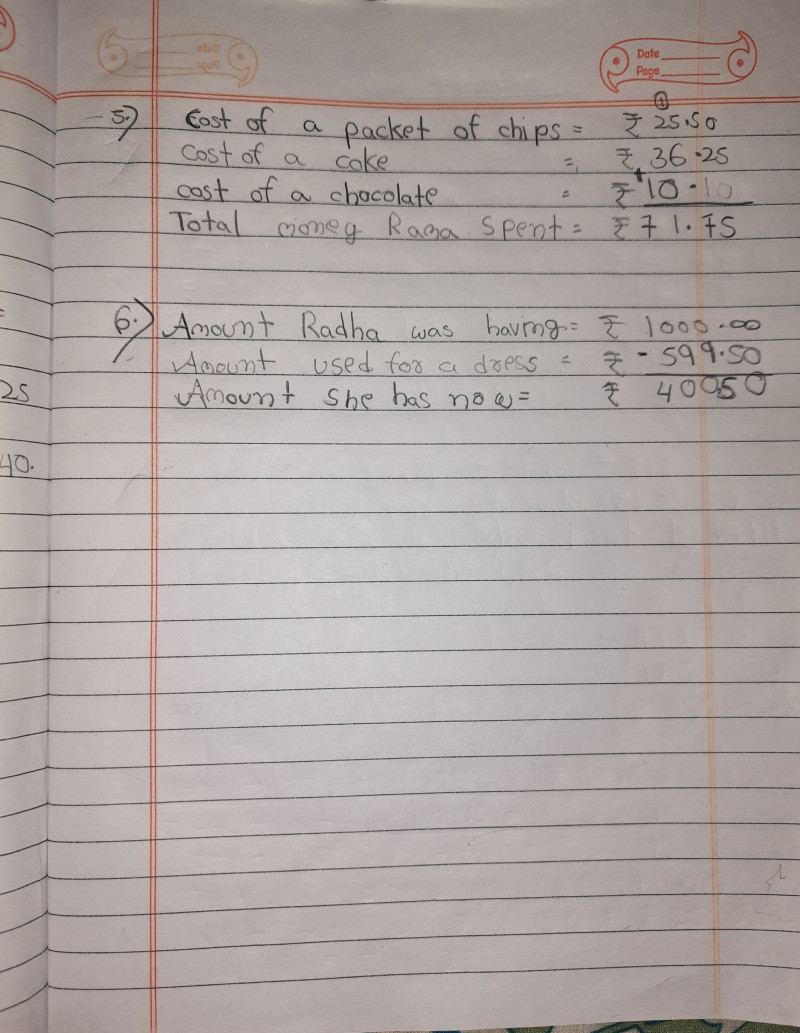 Date
Page
5.) Cost of a packet of chips = ₹ 25.50
①
Cost of a coke = ₹ 36.25
cost of a chocolate = ₹ +10.10
Total money Rama Spent = ₹ 71.75
6.) Amount Radha was having = ₹ 1000.00
Amount used for a dress = ₹ - 599.50
Amount she has now = ₹ 400.50
25
40.